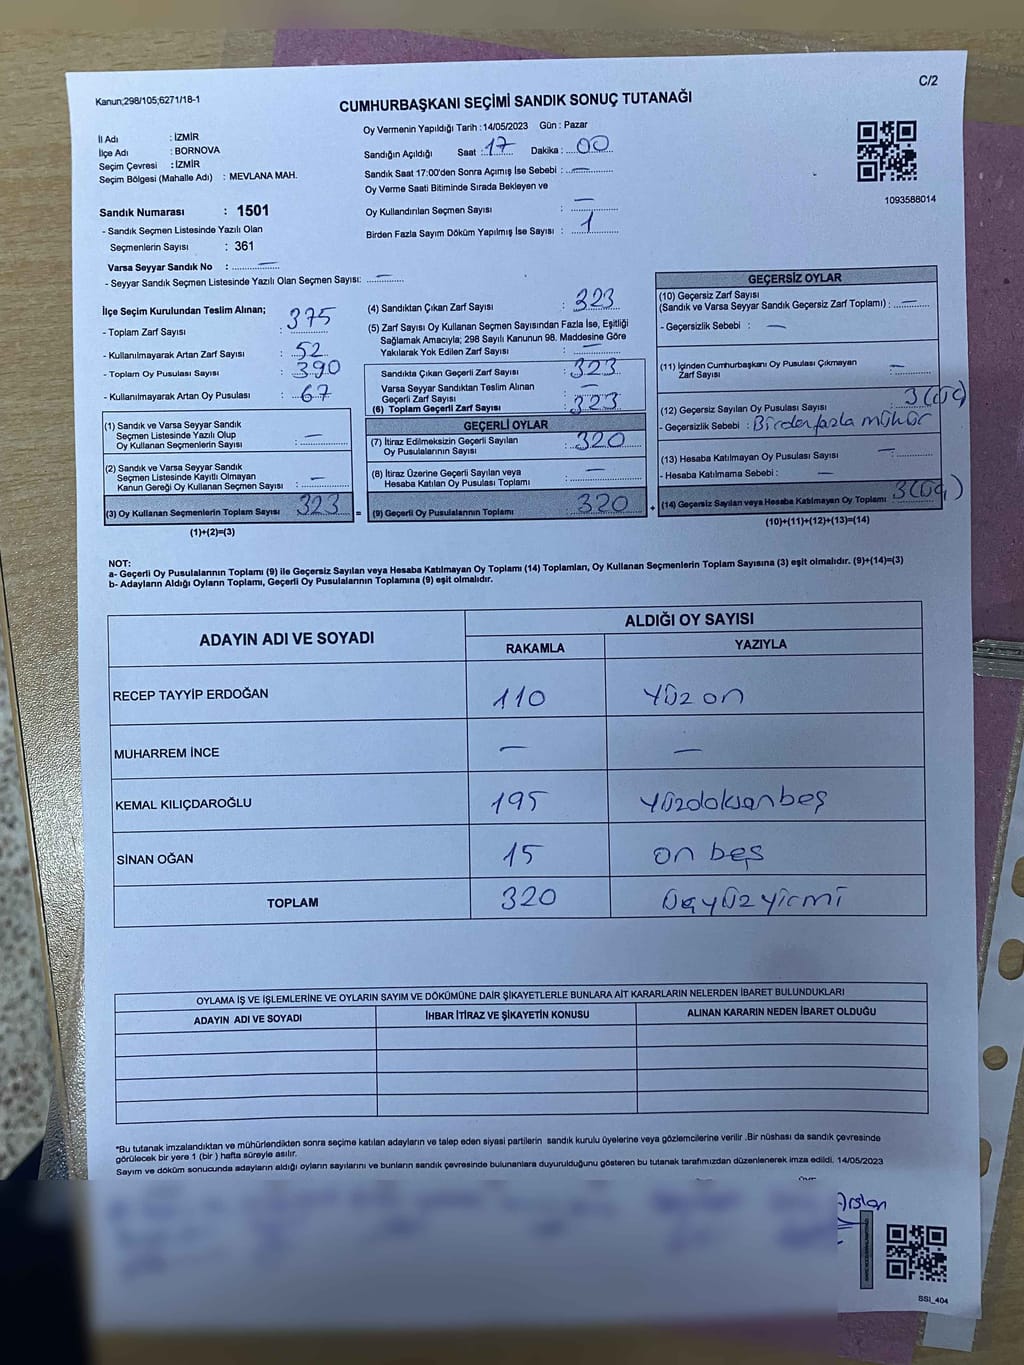 Kanun;298/105;6271/18-1
C/2
CUMHURBAŞKANI SEÇİMİ SANDIK SONUÇ TUTANAĞI
İl Adı : İZMİR
İlçe Adı : BORNOVA
Seçim Çevresi : İZMİR
Seçim Bölgesi (Mahalle Adı) : MEVLANA MAH.
Sandık Numarası : 1501
- Sandık Seçmen Listesinde Yazılı Olan
Seçmenlerin Sayısı : 361
Varsa Seyyar Sandık No : —
- Seyyar Sandık Seçmen Listesinde Yazılı Olan Seçmen Sayısı: —
Oy Vermenin Yapıldığı Tarih :14/05/2023 Gün : Pazar
Sandığın Açıldığı Saat : 17 Dakika : 00
Sandık Saat 17:00'den Sonra Açımış İse Sebebi : —
Oy Verme Saati Bitiminde Sırada Bekleyen ve
Oy Kullandırılan Seçmen Sayısı : —
Birden Fazla Sayım Döküm Yapılmış İse Sayısı : 1
1093588014
İlçe Seçim Kurulundan Teslim Alınan;
- Toplam Zarf Sayısı : 375
- Kullanılmayarak Artan Zarf Sayısı : 52
- Toplam Oy Pusulası Sayısı : 390
- Kullanılmayarak Artan Oy Pusulası : 67
(1) Sandık ve Varsa Seyyar Sandık
Seçmen Listesinde Yazılı Olup
Oy Kullanan Seçmenlerin Sayısı : —
(2) Sandık ve Varsa Seyyar Sandık
Seçmen Listesinde Kayıtlı Olmayan
Kanun Gereği Oy Kullanan Seçmen Sayısı : —
(3) Oy Kullanan Seçmenlerin Toplam Sayısı 323 =
(1)+(2)=(3)
(4) Sandıktan Çıkan Zarf Sayısı : 323
(5) Zarf Sayısı Oy Kullanan Seçmen Sayısından Fazla İse, Eşitliği
Sağlamak Amacıyla; 298 Sayılı Kanunun 98. Maddesine Göre
Yakılarak Yok Edilen Zarf Sayısı : —
Sandıkta Çıkan Geçerli Zarf Sayısı : 323
Varsa Seyyar Sandıktan Teslim Alınan
Geçerli Zarf Sayısı : —
(6) Toplam Geçerli Zarf Sayısı : 323
GEÇERLİ OYLAR
(7) İtiraz Edilmeksizin Geçerli Sayılan
Oy Pusulalarının Sayısı : 320
(8) İtiraz Üzerine Geçerli Sayılan veya
Hesaba Katılan Oy Pusulası Toplamı : —
(9) Geçerli Oy Pusulalarının Toplamı : 320 +
GEÇERSİZ OYLAR
(10) Geçersiz Zarf Sayısı
(Sandık ve Varsa Seyyar Sandık Geçersiz Zarf Toplamı) : —
- Geçersizlik Sebebi : —
(11) İçinden Cumhurbaşkanı Oy Pusulası Çıkmayan
Zarf Sayısı : —
(12) Geçersiz Sayılan Oy Pusulası Sayısı : 3 (üç)
- Geçersizlik Sebebi : Birden fazla mühür
(13) Hesaba Katılmayan Oy Pusulası Sayısı — :
- Hesaba Katılmama Sebebi : —
(14) Geçersiz Sayılan veya Hesaba Katılmayan Oy Toplamı : 3 (üç)
(10)+(11)+(12)+(13)=(14)
NOT:
a- Geçerli Oy Pusulalarının Toplamı (9) ile Geçersiz Sayılan veya Hesaba Katılmayan Oy Toplamı (14) Toplamları, Oy Kullanan Seçmenlerin Toplam Sayısına (3) eşit olmalıdır. (9)+(14)=(3)
b- Adayların Aldığı Oyların Toplamı, Geçerli Oy Pusulalarının Toplamına (9) eşit olmalıdır.
ADAYIN ADI VE SOYADI
ALDIĞI OY SAYISI
RAKAMLA YAZIYLA
RECEP TAYYİP ERDOĞAN 110 yüz on
MUHARREM İNCE — —
KEMAL KILIÇDAROĞLU 195 yüzdoksanbeş
SİNAN OĞAN 15 on beş
TOPLAM 320 üçyüzyirmi
OYLAMA İŞ VE İŞLEMLERİNE VE OYLARIN SAYIM VE DÖKÜMÜNE DAİR ŞİKAYETLERLE BUNLARA AİT KARARLARIN NELERDEN İBARET BULUNDUKLARI
ADAYIN ADI VE SOYADI İHBAR İTİRAZ VE ŞİKAYETİN KONUSU ALINAN KARARIN NEDEN İBARET OLDUĞU
*Bu tutanak imzalandıktan ve mühürlendikten sonra seçime katılan adayların ve talep eden siyasi partilerin sandık kurulu üyelerine veya gözlemcilerine verilir .Bir nüshası da sandık çevresinde
görülecek bir yere 1 (bir ) hafta süreyle asılır.
Sayım ve döküm sonucunda adayların aldığı oyların sayılarını ve bunların sandık çevresinde bulunanlara duyurulduğunu gösteren bu tutanak tarafımızdan düzenlenerek imza edildi. 14/05/2023
Arslan
SSI_404